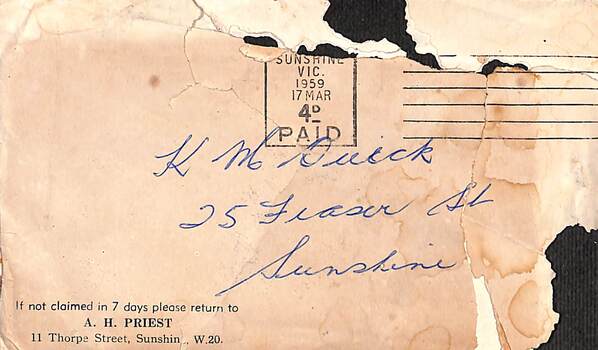 SUNSHINE
VIC.
1959
17 MAR
4D
PAID
K M Quick
25 Fraser St
Sunshine
If not claimed in 7 days please return to
A. H. PRIEST
11 Thorpe Street, Sunshin , W.20.